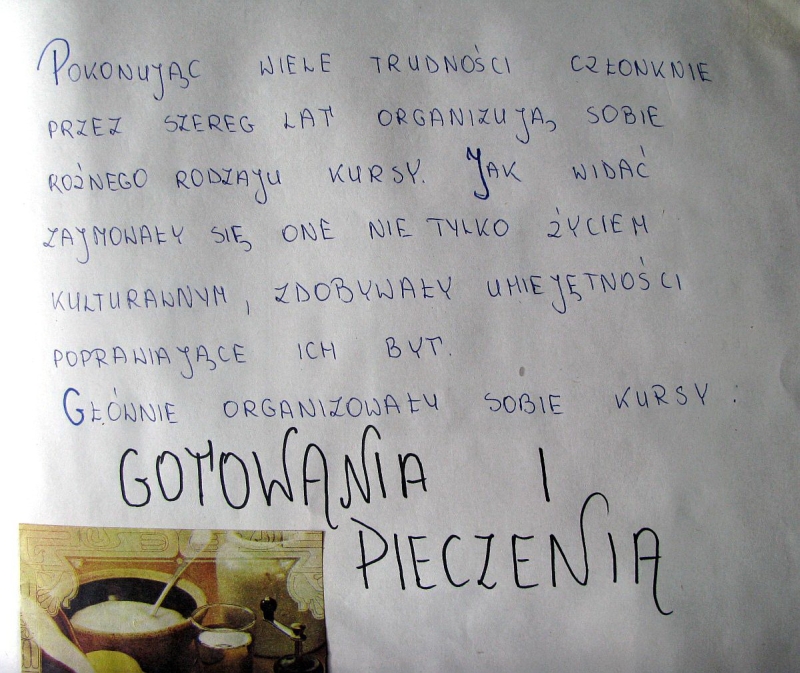 POKONUJĄC WIELE TRUDNOŚCI CZŁONKNIE
PRZEZ SZEREG LAT ORGANIZUJĄ SOBIE
ROŻNEGO RODZAJU KURSY. JAK WIDAĆ
ZAJMOWAŁY SIĘ ONE NIE TYLKO ŻYCIEM
KULTURAWNYM, ZDOBYWAŁY UMIEJĘTNOŚCI
POPRAWIAJĄCE ICH BYT.
GŁÓWNIE ORGANIZOWAŁY SOBIE KURSY :
GOTOWANIA I
PIECZENIA